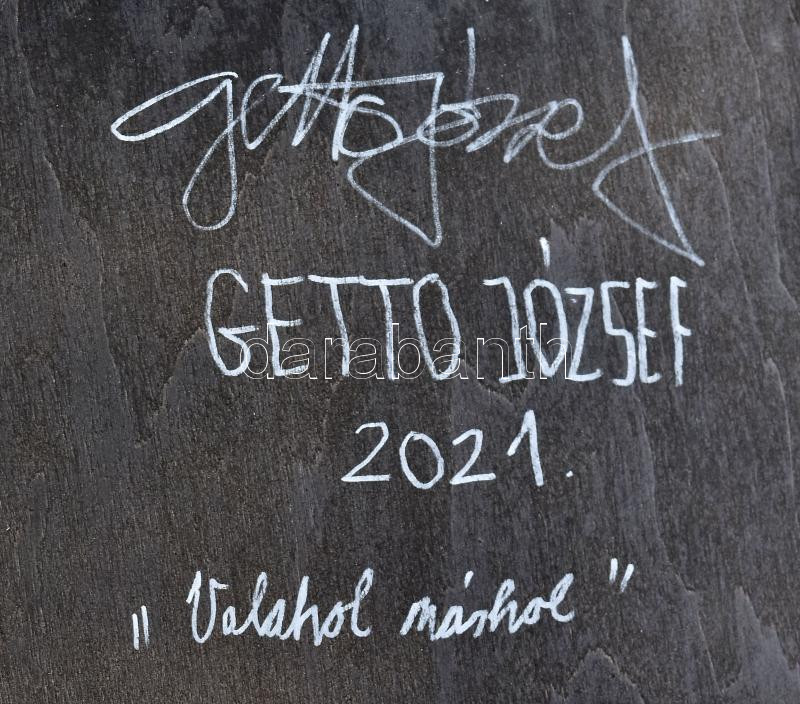 Getto József
GETTO JÓZSEF
darabanth
2021.
„Valahol máshol"